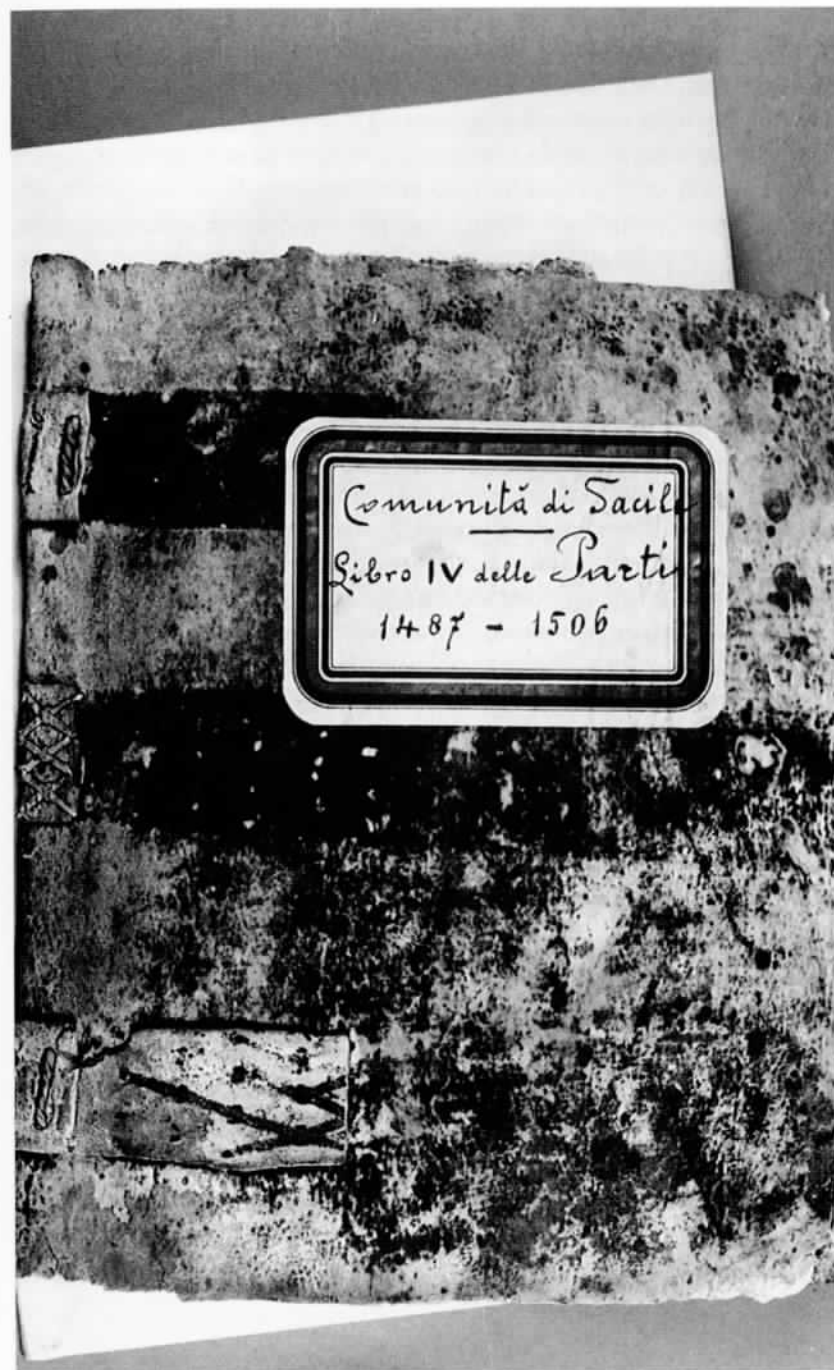 Comunità di Sacile
Libro IV delle Parti
1487 - 1506